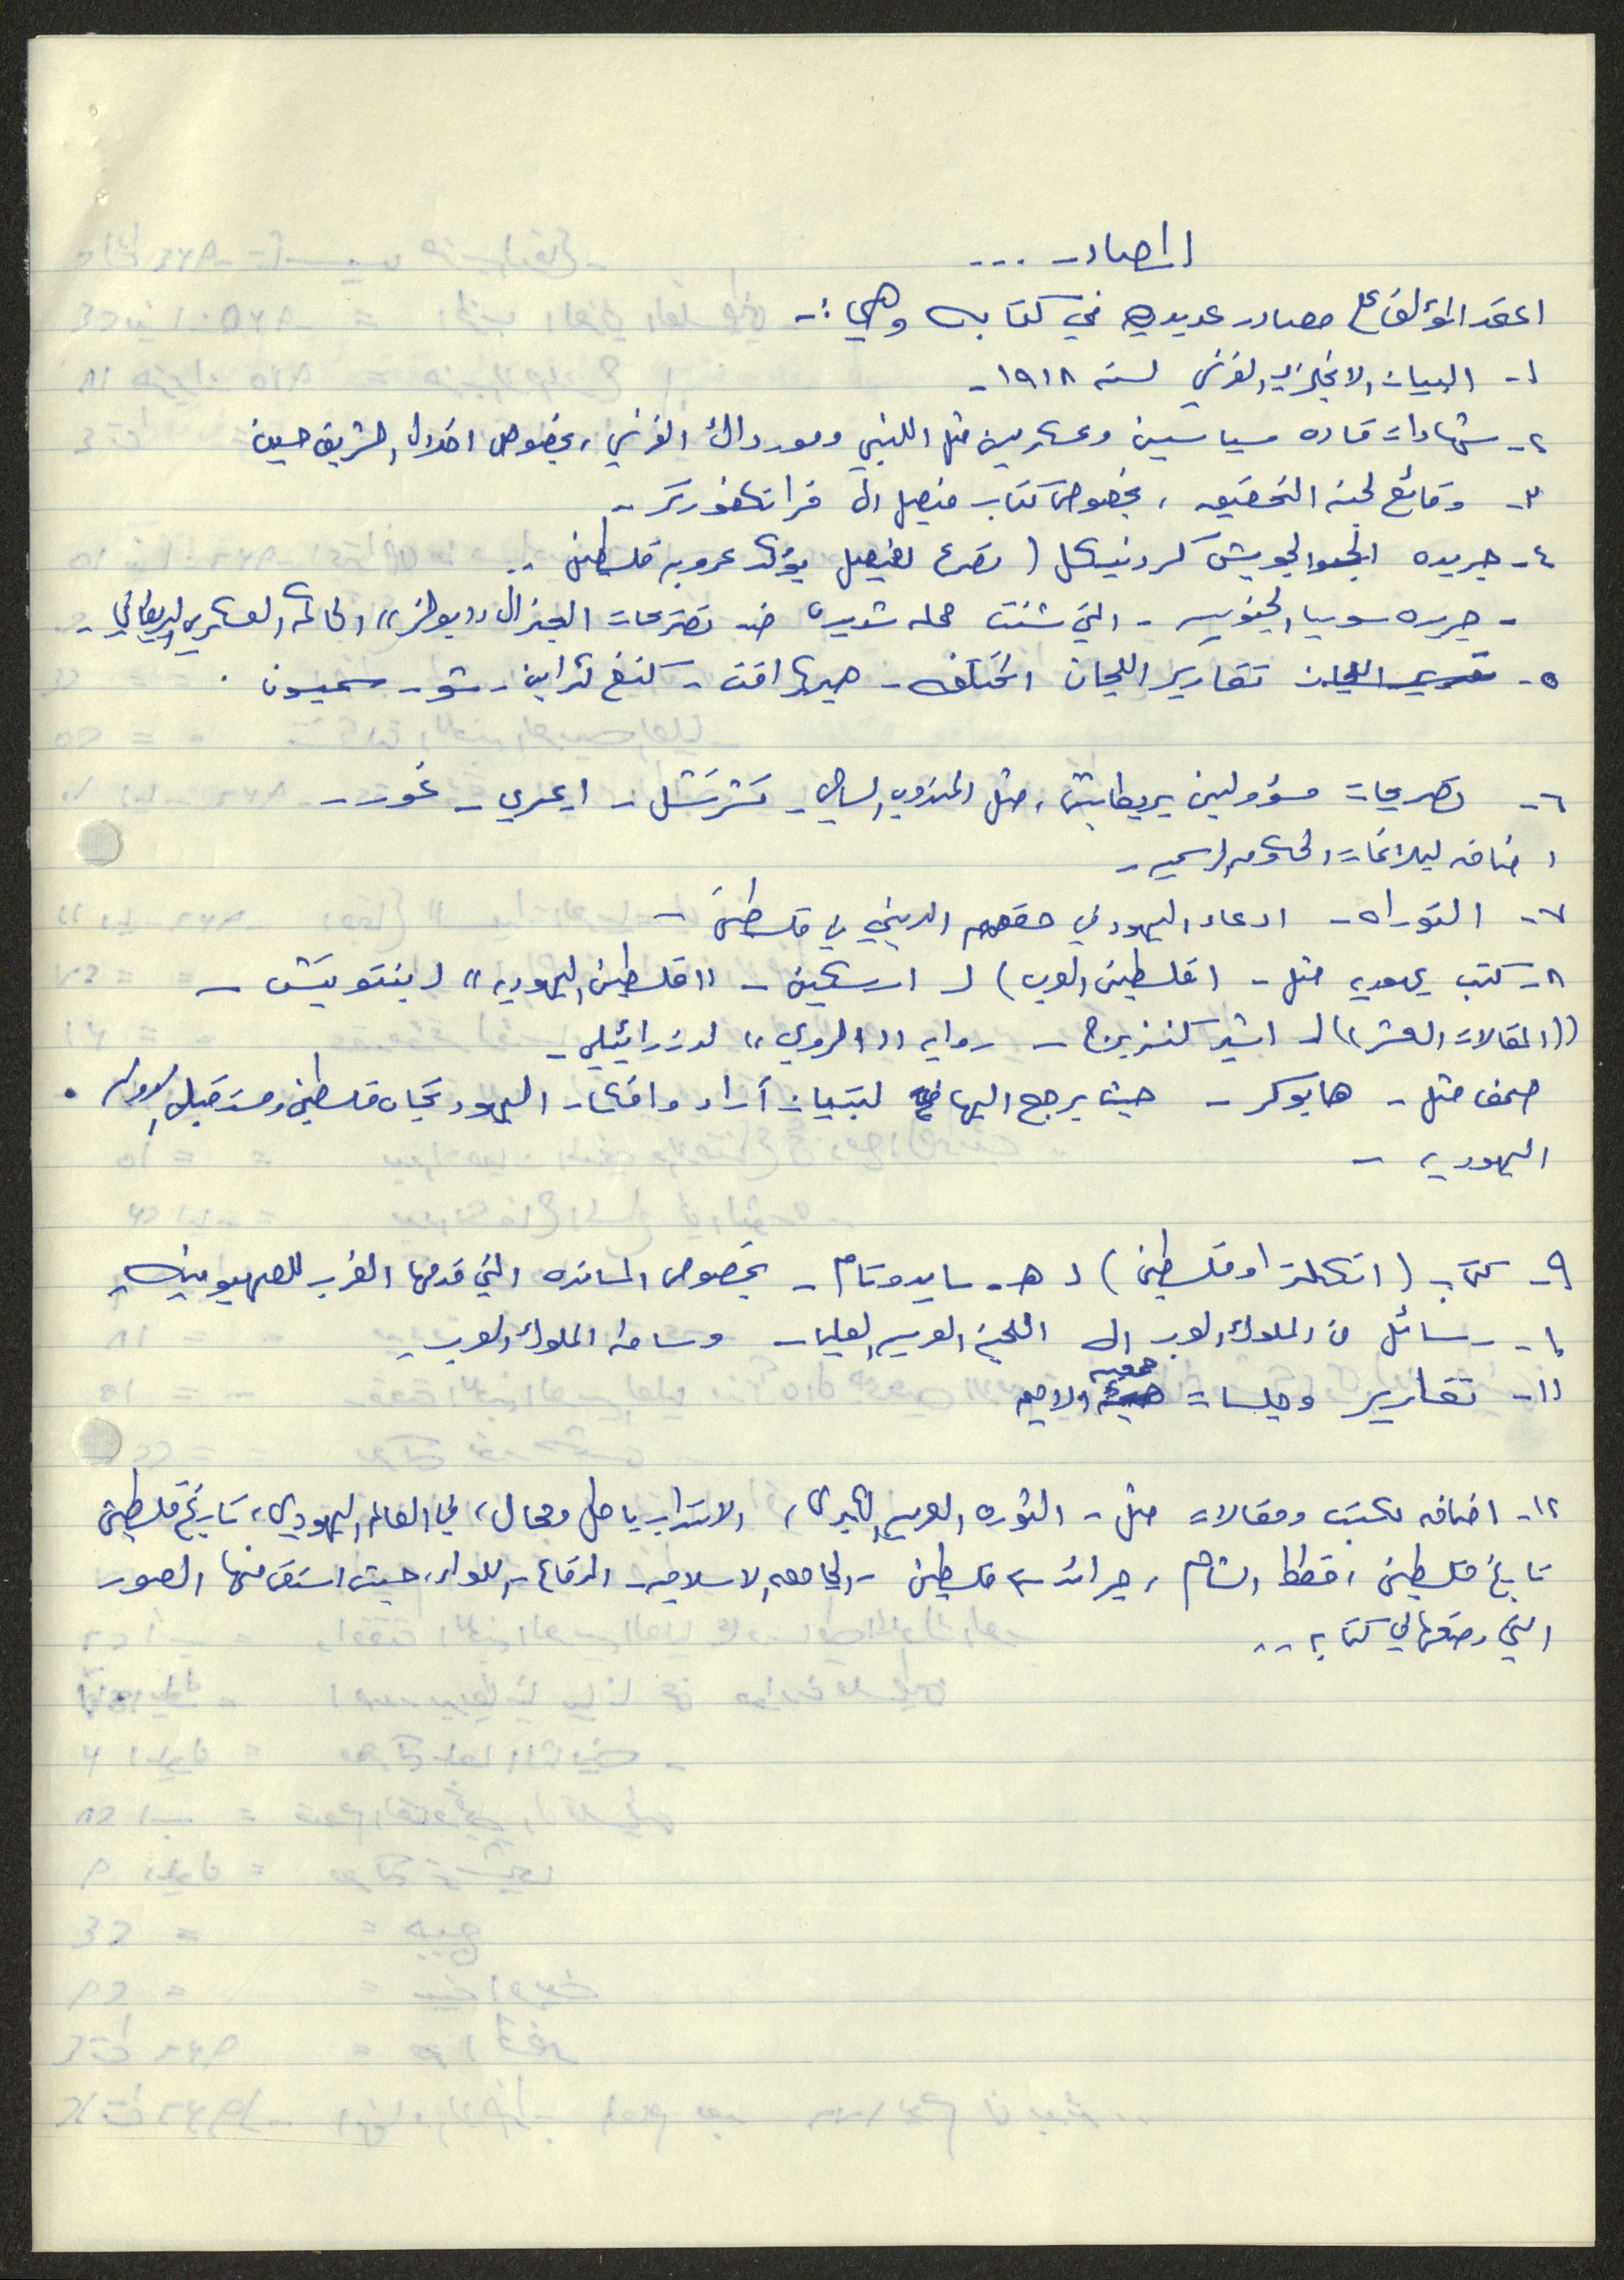 المصادر ...
اعتمد المؤلف على مصادر عديدة في كتابه وهي :-
١- البيان الانجليزي الفرنسي لسنه ١٩١٨ -
٢- شهادات قاده سياسيين وعسكريين مثل اللنبي وموردال الفرنسي، بخصوص اخلاص الشريف حسين
٣- وقائع لجنه التحقيق، بخصوص كتاب فيصل الى فرانكفورتر -
٤- جريده الجويش كرونيكل ( تصريح لفيصل يؤكد عروبه فلسطين ..
- جريده سوريا الجنوبيه - التي شنت حمله شديده ضد تصريحات الجنرال ((بولز)) الحاكم العسكري البريطاني -
٥- تقارير اللجان المختلفه - هيرافت - كنغ كراين - شو - سمبسون .
٦- تصريحات مسؤولين بريطانيين، مثل المندوب السامي - تشرشل - ايمري - غور -
اضافه لبلاغات الحكومه الرسميه -
٧- التوراه - ادعاء اليهود في حقهم الديني في فلسطين -
٨- كتب يهوديه مثل - (فلسطين العرب) لـ ارسكين - ((فلسطين اليهوديه)) لـ بنتويتش -
((المقالات العشر)) لـ اشير كنزبرج - روايه ((الروي)) لدزرائيلي -
صحف مثل - هابوكر - حيث يرجع اليها لتبيان آراء وافكار اليهود تجاه فلسطين ومستقبل الدوله .
اليهوديه -
٩- كتاب (انكلترا وفلسطين) لـ هـ. سايدوتام - بخصوص المسانده التي قدمها الغرب للصهيونيه
١٠- رسائل من الملوك العرب الى اللجنه العربيه العليا - وساطه الملوك العرب
١١- تقارير وجلسات جمعيه الامم
١٢- اضافه لكتب ومقالات مثل - الثوره العربيه الكبرى، الانتداب باطل ومحال، في العالم اليهودي، تاريخ فلسطين
تاريخ فلسطين، خطط الشام، جرائد - فلسطين - الجامعه الاسلاميه - الدفاع - اللواء، حيث استقى منها الصور
التي وضعها في كتابه ..